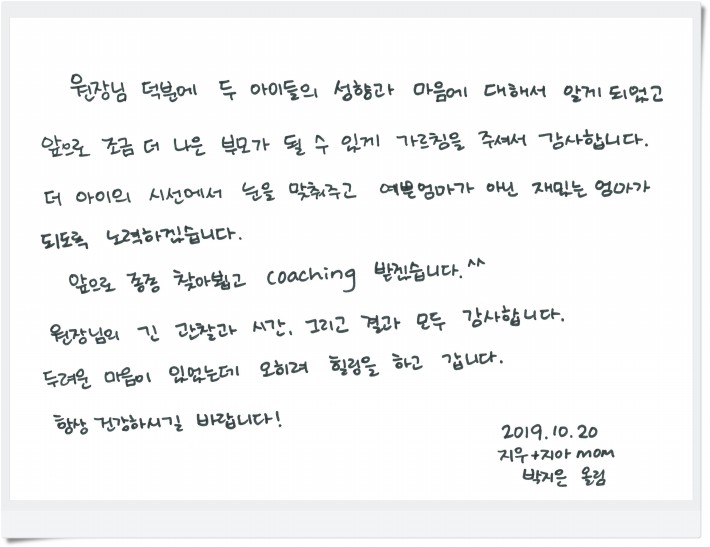 원장님 덕분에 두 아이들의 성향과 마음에 대해서 알게 되었고
앞으로 조금 더 나은 부모가 될 수 있게 가르침을 주셔서 감사합니다.
더 아이의 시선에서 눈을 맞춰주고 예쁜엄마가 아닌 재밌는 엄마가
되도록 노력하겠습니다.
앞으로 종종 찾아뵙고 coaching 받겠습니다.^^
원장님의 긴 관찰과 시간, 그리고 결과 모두 감사합니다.
두려운 마음이 있었는데 오히려 힐링을 하고 갑니다.
항상 건강하시길 바랍니다!
2019.10.20
지우+지아 mom
박지은 올림